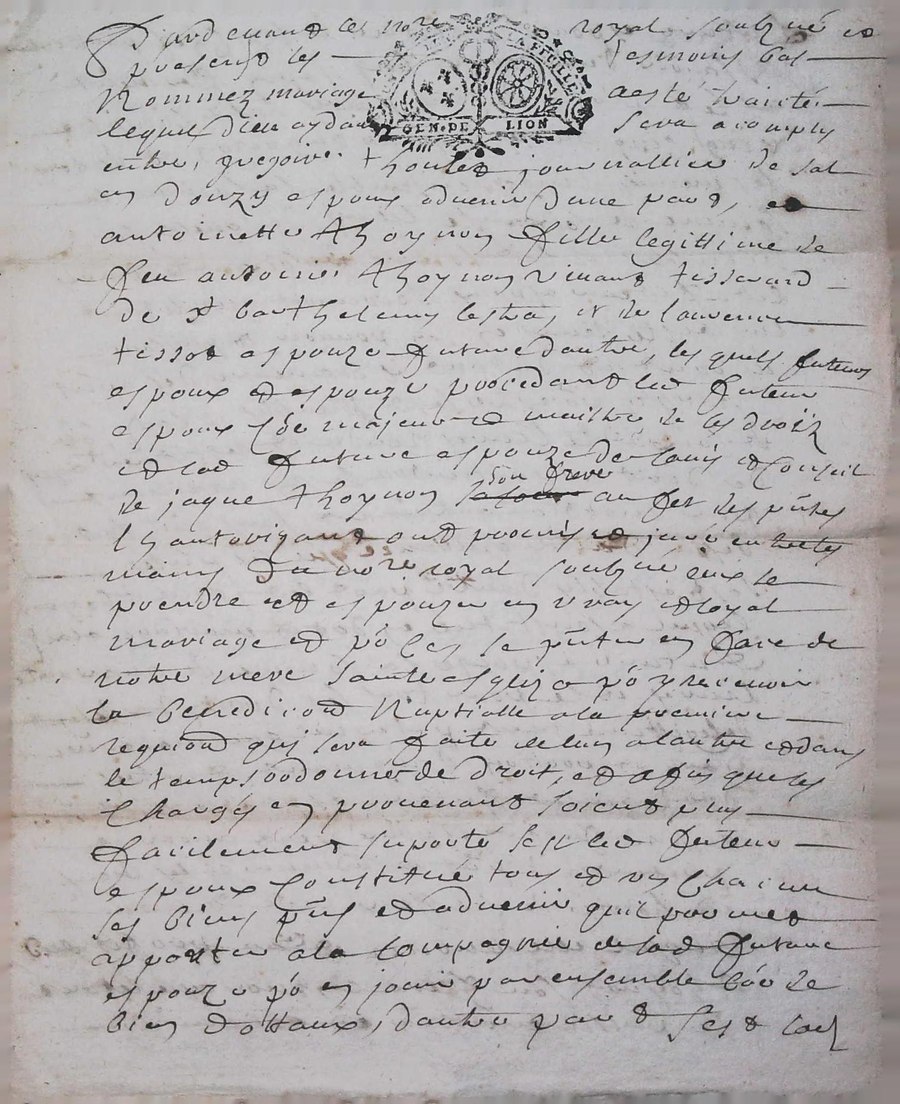 Pardevant le no.re royal soubzné et
presents les tesmoins bas
LA FEUILLE
GEN. DE LION
Nommez mariage a esté traité
lequel dieu aydant sera acomply
entre, gregoire thoulet journallier de sal
en donzy espoux advenir d'une part, et
antoinette thoynon fille legittime de
feu antoine thoynon vivant tisserand
de st barthelemy lestra, et de laurence
tissot espouze future dautre, les quels futeurs
espoux et espouze procedant led futeur
espoux majeur et maistre de ses droitz
et lad future espouze de lavis et conseil
de jaque thoynon son frere au fet des pntes
l autorizant ont promis et juré
mains du no.re royal soubzné eux se
prendre et espouzer en vray et loyal
mariage et po ce se pnter en face de
notre mere sainte esglize po y recevoir
la benediction Nuptialle a la premiere
requiond qui sera faite de lun a lautre et dans
le temps ordonné de droit, et afin que les
Charges en provenant soient plus
facilement suporté s est led futeur
espoux Constitué tous et un Chacun
ses biens pns et advenir quil promet
apporter a la Compagnie de lad future
espouze po en jouir par ensemble de
bien dottaux, dautre part sest